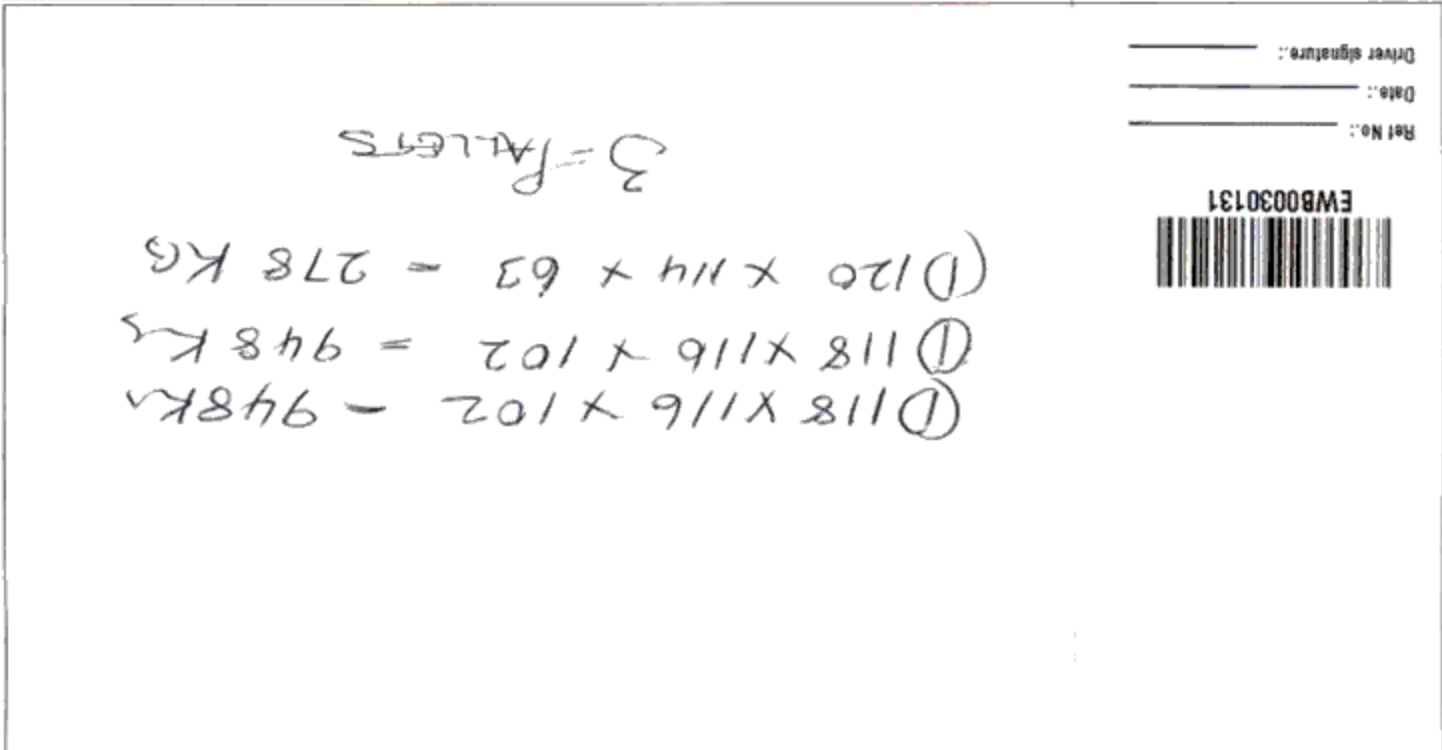 ① 118 X 116 X 102 - 948 KG
① 118 X 116 X 102 = 948 KG
① 120 X 114 X 63 = 278 KG
3 = PALLETS
EWB0030131
Ref No.:
Date.:
Driver signature.: